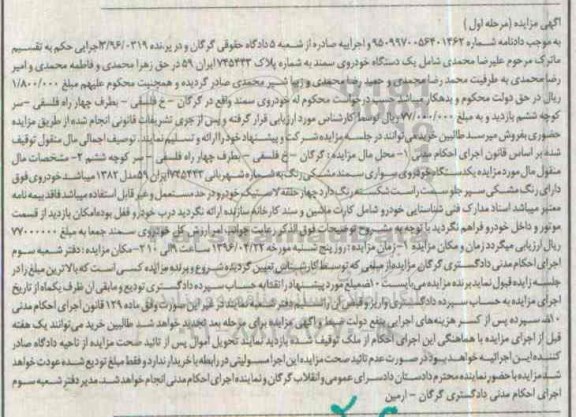 آگهی مزایده (مرحله اول)
به موجب دادنامه شماره ۹۵۰۹۹۷۰۰۵۶۴۰۱۴۶۲ و اجراییه صادره از شعبه ۵ دادگاه حقوقی گرگان و در پرونده ۳/۹۶/۰۳۱۹ اجرایی حکم به تقسیم
ماترک مرحوم علیرضا محمدی شامل یک دستگاه خودروی سمند به شماره پلاک ۷۴۵۴۳۳ ایران ۵۹ در حق زهرا محمدی و فاطمه محمدی و امیر
رضا محمدی به طرفیت محمد رضا محمدی و حمید رضا محمدی و زیبا شیر محمدی صادر گردیده و همچنین محکوم علیهم مبلغ ۱/۸۰۰/۰۰۰
ریال در حق دولت محکوم و بدهکار میباشد حسب درخواست محکوم له خودروی سمند واقع در گرگان - خ فلسفی - بطرف چهار راه فلسفی - سر
کوچه ششم بازدید و به مبلغ ۷۷/۰۰۰/۰۰۰ ریال توسط کارشناس مورد ارزیابی قرار گرفته و پس از جری تشریفات قانونی انجام شده از طریق مزایده
حضوری بفروش میرسد طالبین خرید می توانند در جلسه مزایده شرکت و پیشنهاد خود را ارائه و تسلیم نمایند. توصیف اجمالی مال منقول توقیف
شده بر اساس قانون اجرای احکام مدنی ۱- محل مال مزایده: گرگان - خ فلسفی - بطرف چهار راه فلسفی - سر کوچه ششم ۲- مشخصات مال
منقول مال مورد مزایده یکدستگاه خودروی سواری سمند مشکی رنگ به شماره شهربانی ۷۴۵۴۳۳ ایران ۵۹ مدل ۱۳۸۲ میباشد خودروی فوق
دارای رنگ مشکی سپر جلو سمت راست شکسته رنگ دارد چهار حلقه لاستیک خودرو در حد مستعمل و غیر قابل استفاده میباشد فاقد بیمه نامه
معتبر میباشد اسناد مدارک فنی شناسنایی خودرو شامل کارت ماشین و سند کارخانه سازنده ارائه نگردید درب خودرو قفل بوده امکان بازدید از قسمت
موتور و داخل خودرو فراهم نگردید با توجه به مشروح توضیحات فوق الذکر رعایت جوانب امر ارزش کل خودروی سمند جمعا به مبلغ ۷۷۰۰۰۰۰۰
ریال ارزیابی میگردد زمان و مکان مزایده ۱- زمان مزایده: روز پنج شنبه مورخه ۱۳۹۶/۰۴/۲۲ ساعت ۹ الی ۱۰ ۲- مکان مزایده: دفتر شعبه سوم
اجرای احکام مدنی دادگستری گرگان مزایده از مبلغی که توسط کارشناس تعیین گردیده شروع و برنده مزایده کسی است که بالاترین مبلغ را در
جلسه مزایده قبول نماید برنده مزایده می بایست ۱۰٪ مبلغ مورد پیشنهاد را نقدا به حساب سپرده دادگستری تودیع و مابقی آن ظرف یکماه از تاریخ
اجرای مزایده به حساب سپرده دادگستری واریز و فیش آن را تسلیم دفتر شعبه نمایند در غیر این صورت وفق ماده ۱۲۹ قانون اجرای احکام مدنی
۱۰٪ سپرده پس از کسر هزینه های اجرایی بنفع دولت ضبط و آگهی مزایده برای مرحله بعد تجدید خواهد شد طالبین خرید می توانند یک هفته
قبل از اجرای مزایده با هماهنگی این اجرای احکام از ملک توقیف شده بازدید نمایند تحویل اموال پس از تائید صحت مزایده از ناحیه دادگاه صادر
کننده این اجرائیه خواهد بود در صورت عدم تائید صحت مزایده این اجرا مسولیتی در رابطه با خریدار ندارد و فقط مبلغ تودیع شده عودت خواهد
شد مزایده با حضور نماینده محترم دادستان دادسرای عمومی و انقلاب گرگان و نماینده اجرای احکام مدنی انجام خواهد شد. مدیر دفتر شعبه سوم
اجرای احکام مدنی دادگستری گرگان - ارمین